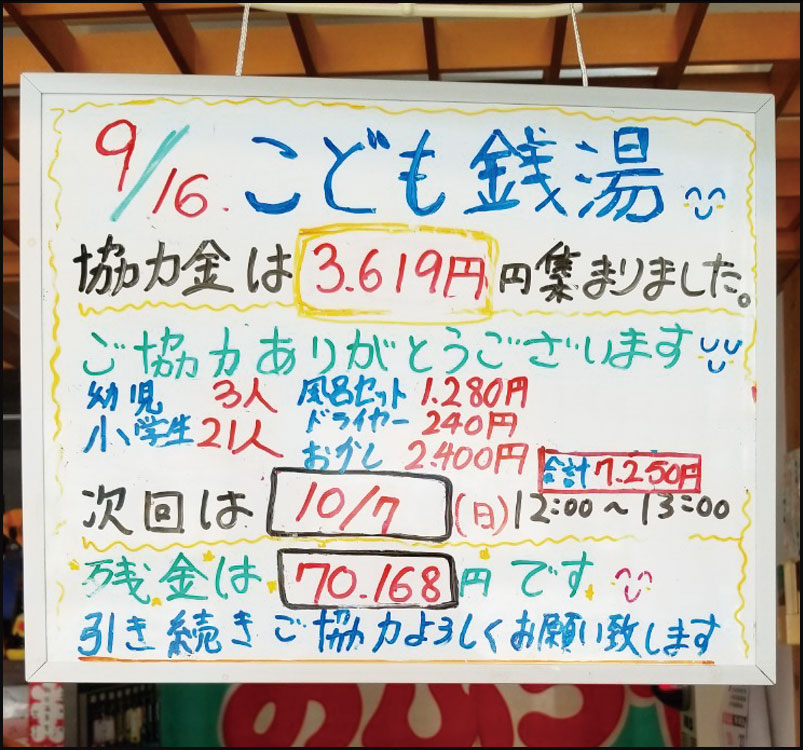 9/16. こども銭湯
協力金は 3.619円 円集まりました。
ご協力ありがとうございます
幼児 3人 風呂セット 1.280円
小学生 21人 ドライヤー 240円
おかし 2.400円 合計 7.250円
次回は 10/7 (日) 12:00～13:00
残金は 70.168 円です
引き続きご協力よろしくお願い致します